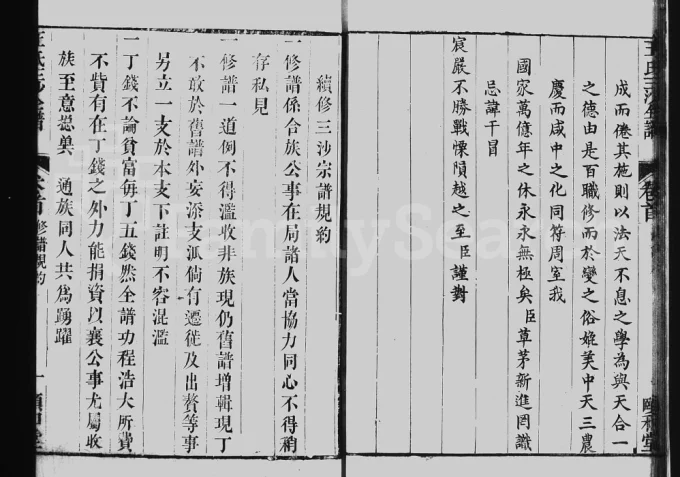 成而倦其施則以法天不息之學為與天合一
之德由是百職修而於變之俗媲美中天三農
慶而咸中之化同符周室我
國家萬億年之休永永無極矣臣草茅新進罔識
忌諱干冒
宸嚴不勝戰慄隕越之至臣謹對
王氏三沙全譜 卷首
續修三沙宗譜規約
一修譜係合族公事在局諸人當協力同心不得稍
存私見
一修譜一道例不得濫收非族現仍舊譜增輯現丁
不敢於舊譜外妄添支派倘有遷徙及出贅等事
另立一支於本支下註明不容混濫
一丁錢不論貧富每丁五錢然全譜功程浩大所費
不貲有在丁錢之外力能捐資以襄公事尤屬收
族至意懇與 通族同人共為踴躍
王氏三沙全譜 卷首 修譜規約 一